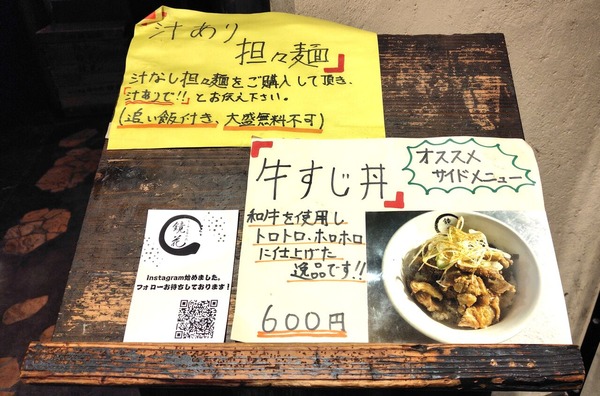 汁あり
担々麺
汁なし担々麺をご購入して頂き、
「汁ありで!!」とお伝え下さい。
(追い飯付き、大盛無料不可)
「牛すじ丼」
オススメ
サイドメニュー
和牛を使用し
トロトロ、ホロホロ
に仕上げた
逸品です!!
600円
鏡花
Instagram始めました。
フォローお待ちしております!